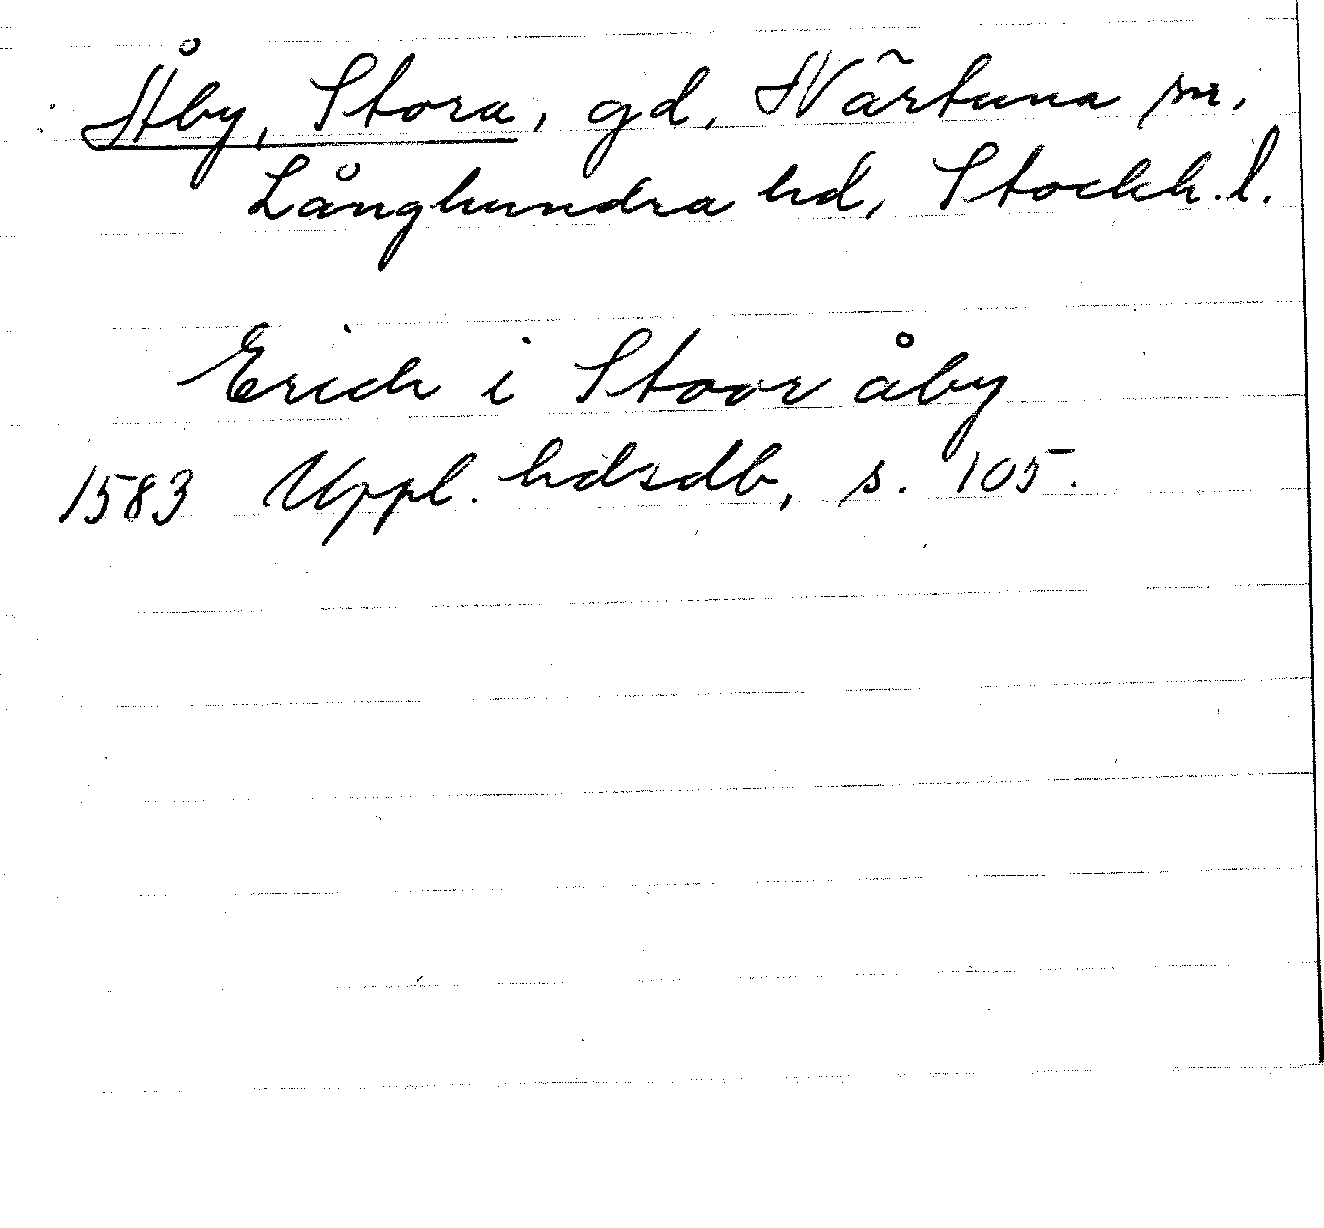 Åby, Stora, gd, Närtuna sn,
Långhundra hd, Stockh. l.
Erich i Stoor åby
1583 Uppl. hdsdb, s. 105.